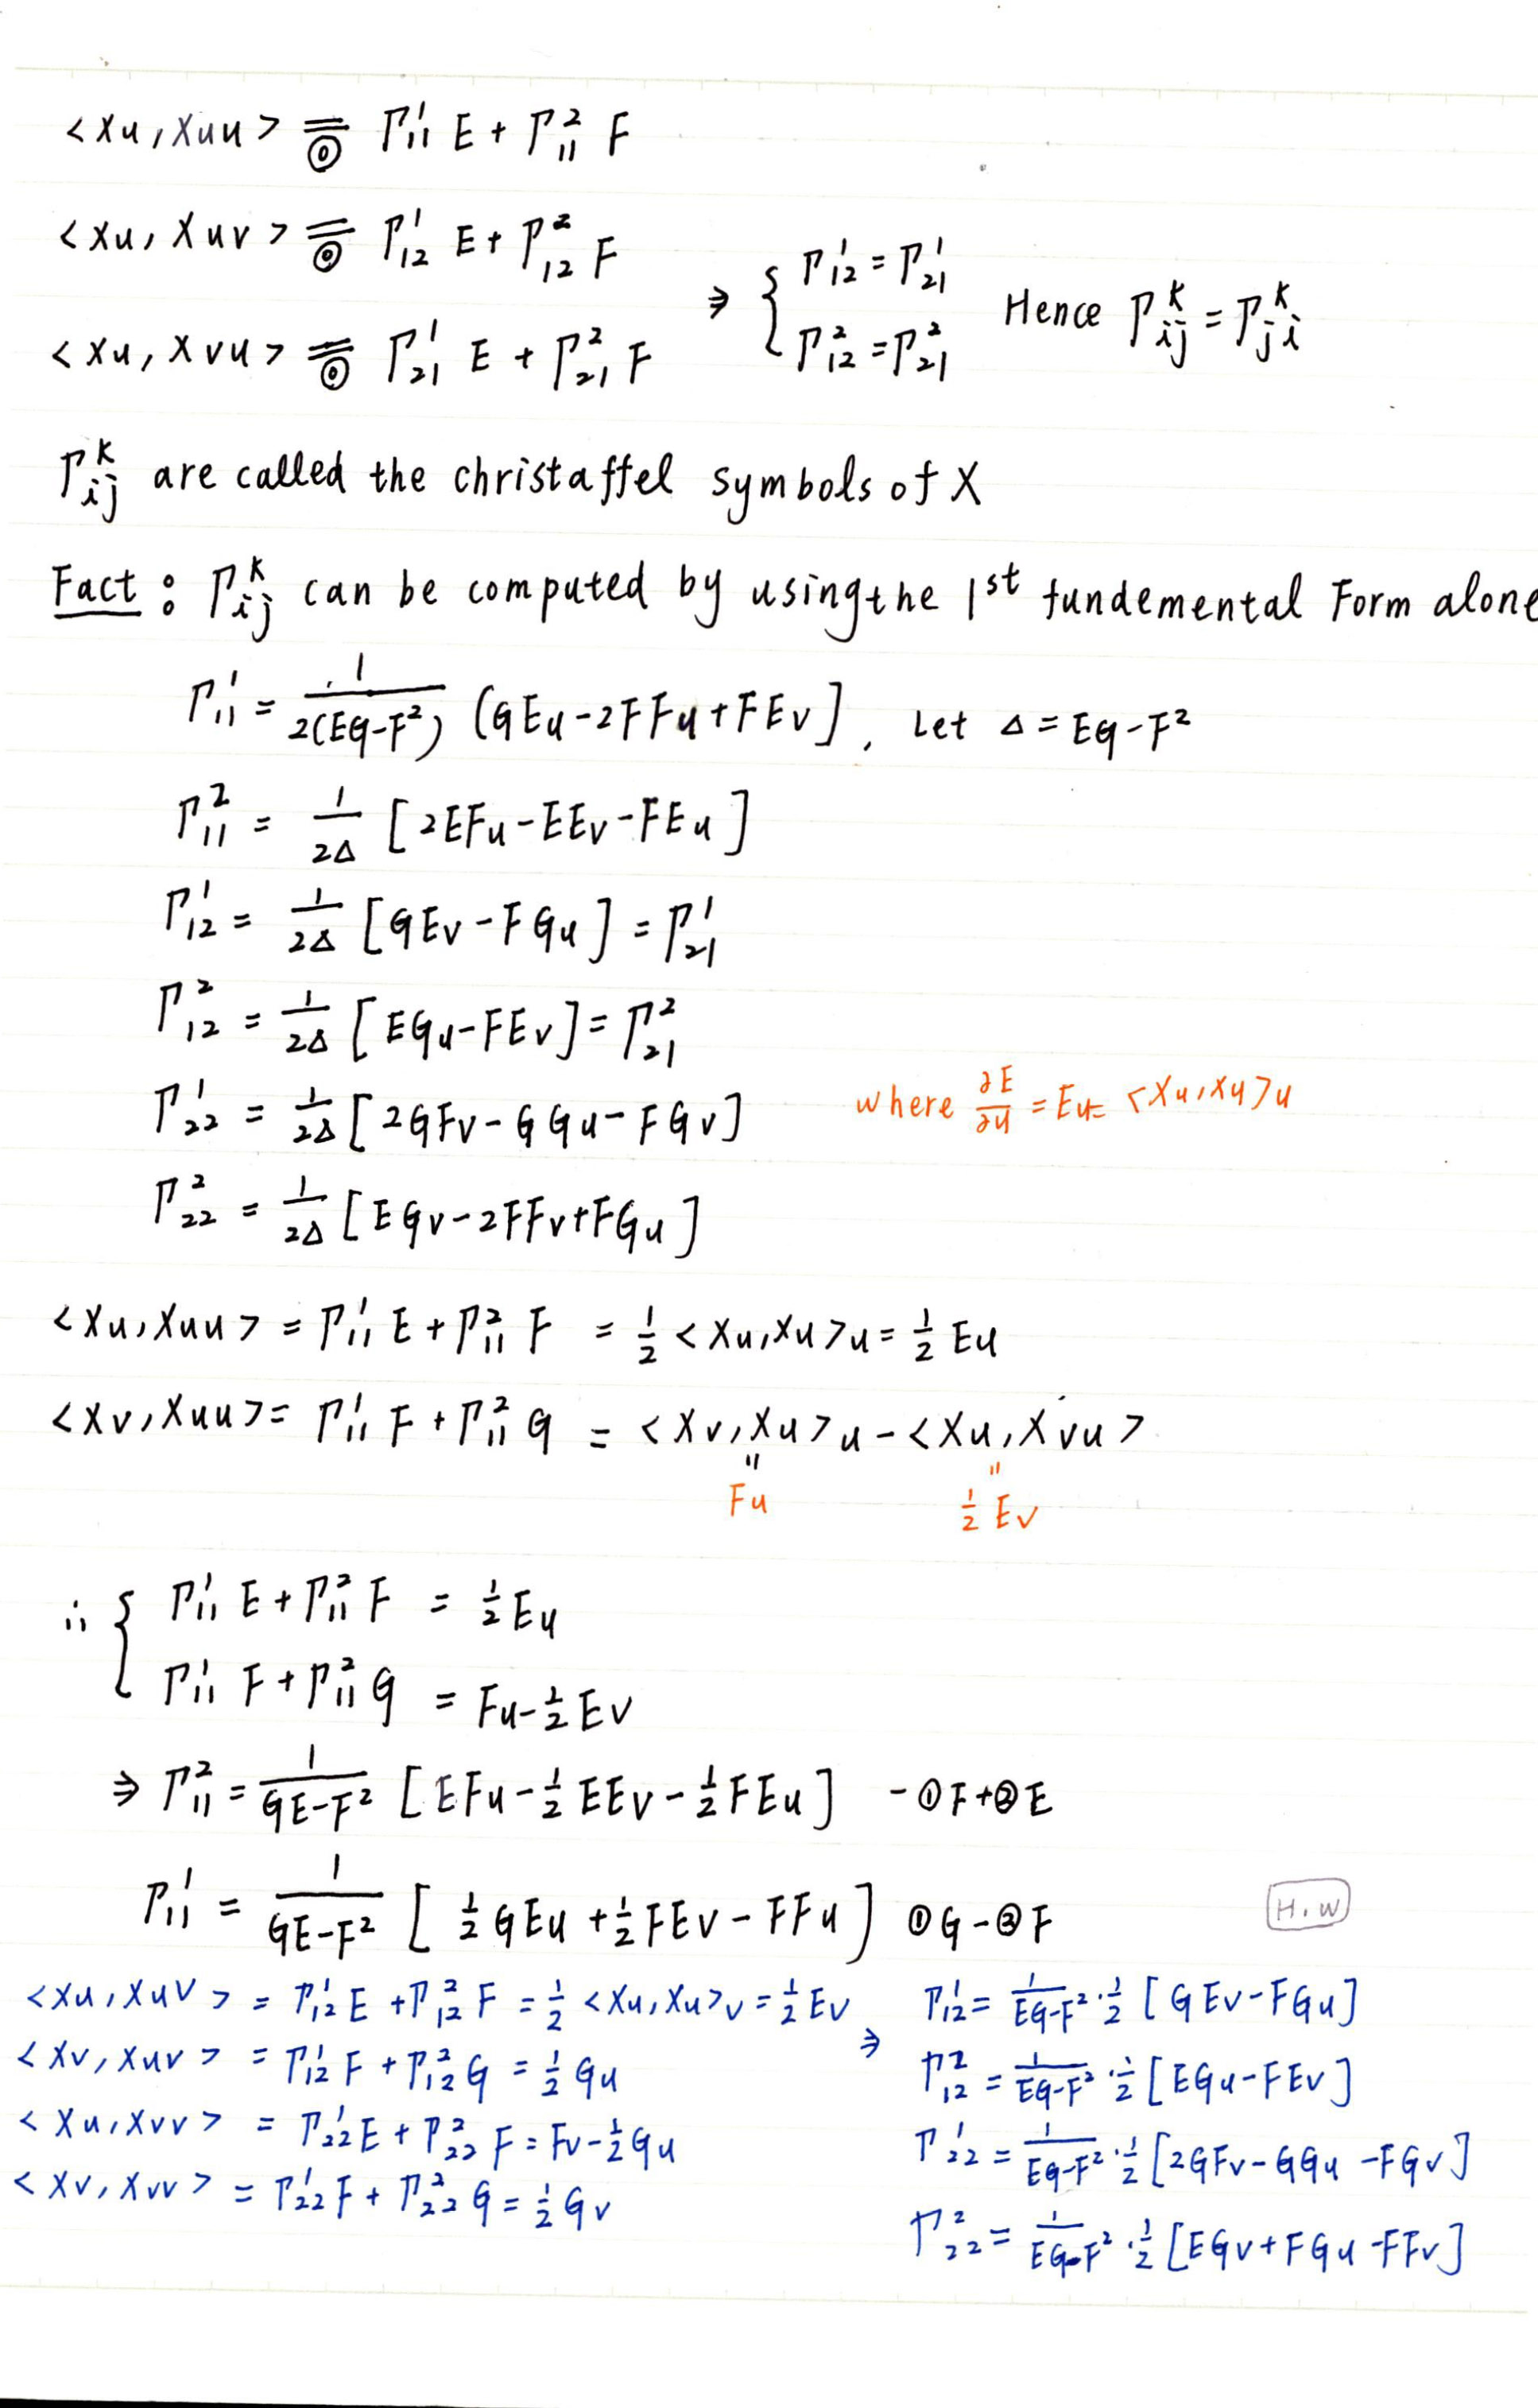 <Xu, Xuu> =⓪ Γ¹₁₁ E + Γ²₁₁ F
<Xu, Xuv> =⓪ Γ¹₁₂ E + Γ²₁₂ F
<Xu, Xvu> =⓪ Γ¹₂₁ E + Γ²₂₁ F
⇒ { Γ¹₁₂ = Γ¹₂₁
Γ²₁₂ = Γ²₂₁
Hence Γᵏᵢⱼ = Γᵏⱼᵢ
Γᵏᵢⱼ are called the christaffel symbols of X
Fact : Γᵏᵢⱼ can be computed by using the 1st fundemental Form alone
Γ¹₁₁ = 1/2(EG-F²) (GEu-2FFu+FEv], Let Δ = EG-F²
Γ²₁₁ = 1/2Δ [2EFu-EEv-FEu]
Γ¹₁₂ = 1/2Δ [GEv-FGu] = Γ¹₂₁
Γ²₁₂ = 1/2Δ [EGu-FEv] = Γ²₂₁
Γ¹₂₂ = 1/2Δ [2GFv-GGu-FGv]
where ∂E/∂u = Eu = <Xu,Xu>u
Γ²₂₂ = 1/2Δ [EGv-2FFv+FGu]
<Xu,Xuu> = Γ¹₁₁ E + Γ²₁₁ F = 1/2 <Xu,Xu>u = 1/2 Eu
<Xv,Xuu> = Γ¹₁₁ F + Γ²₁₁ G = <Xv,Xu>u - <Xu,Xvu>
" "
Fu 1/2 Ev
∴ { Γ¹₁₁ E + Γ²₁₁ F = 1/2 Eu
Γ¹₁₁ F + Γ²₁₁ G = Fu - 1/2 Ev
⇒ Γ²₁₁ = 1/GE-F² [EFu - 1/2 EEv - 1/2 FEu] -①F+②E
Γ¹₁₁ = 1/GE-F² [1/2 GEu + 1/2 FEv - FFu] ①G-②F
H.W
<Xu,Xuv> = Γ¹₁₂ E + Γ²₁₂ F = 1/2 <Xu,Xu>v = 1/2 Ev
<Xv,Xuv> = Γ¹₁₂ F + Γ²₁₂ G = 1/2 Gu
<Xu,Xvv> = Γ¹₂₂ E + Γ²₂₂ F = Fv - 1/2 Gu
<Xv,Xvv> = Γ¹₂₂ F + Γ²₂₂ G = 1/2 Gv
⇒ Γ¹₁₂ = 1/EG-F² · 1/2 [GEv-FGu]
Γ²₁₂ = 1/EG-F² · 1/2 [EGu-FEv]
Γ¹₂₂ = 1/EG-F² · 1/2 [2GFv-GGu-FGv]
Γ²₂₂ = 1/EG-F² · 1/2 [EGv+FGu-FFv]